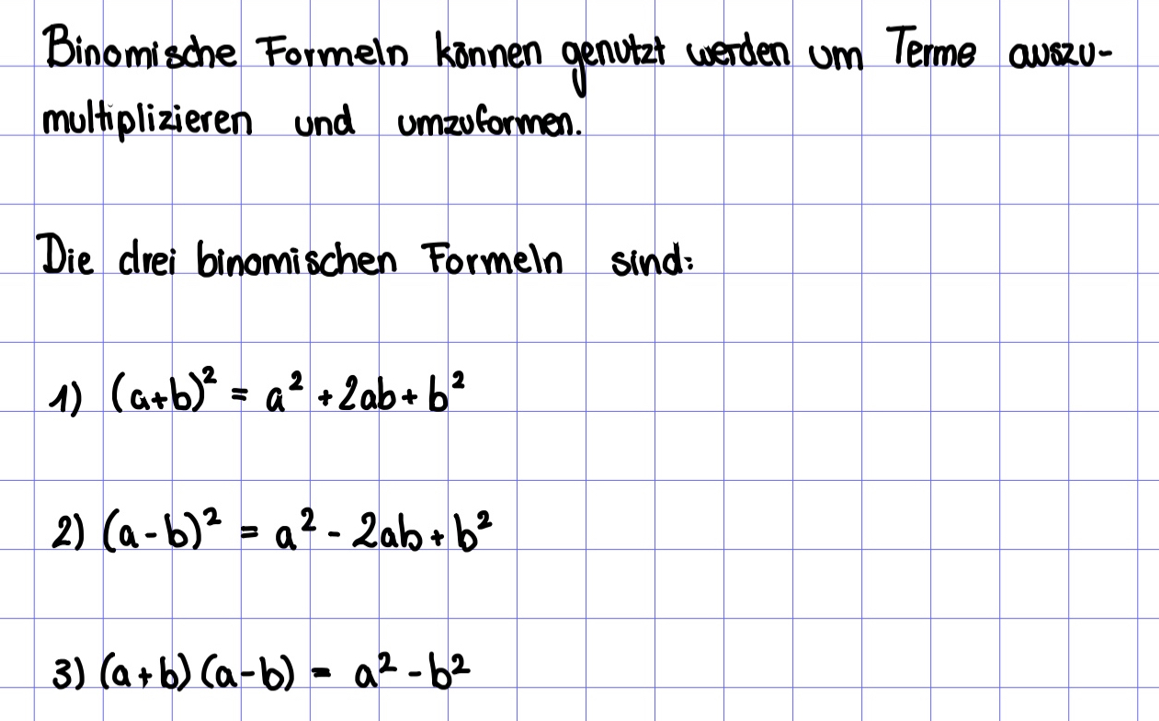 Binomische Formeln können genutzt werden um Terme auszu-
multiplizieren und umzuformen.
Die drei binomischen Formeln sind:
1) (a+b)² = a² + 2ab + b²
2) (a-b)² = a² - 2ab + b²
3) (a+b)(a-b) = a² - b²